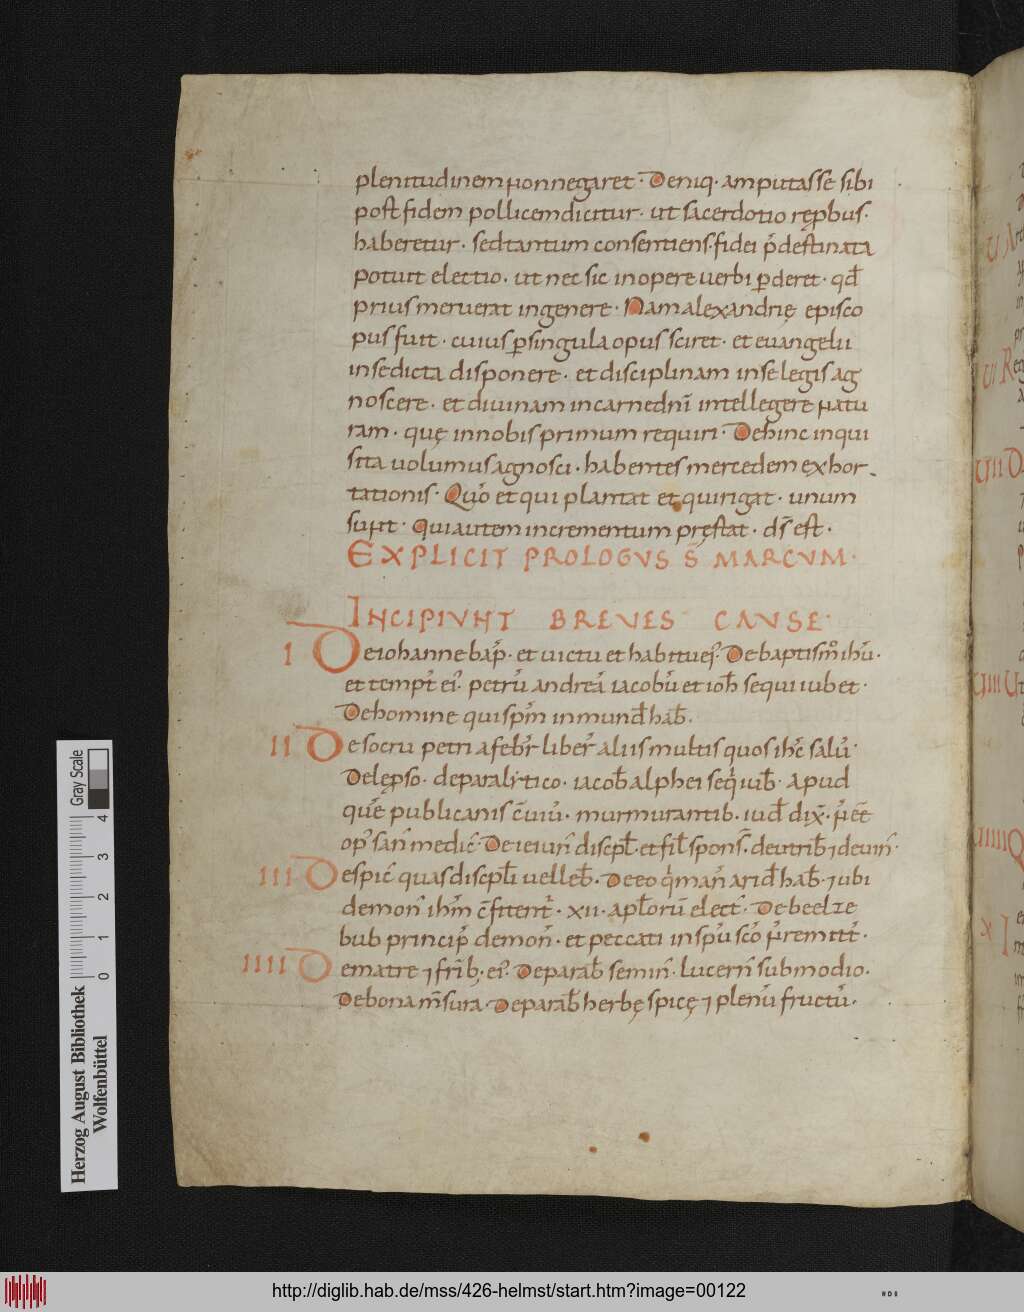 plenitudinem non negaret · Deniq · amputasse sibi
post fidem pollicem dicitur · ut sacerdotio rępbus ·
haberetur · sed tantum consentiens · fidei p̄destinata
potuit electio · ut nec sic in opere uerbi ꝑderet · qđ
prius meruerat in genere · Nam alexandrię episco
pus fuit · cuius ꝑ singula opus sciret · et euangelii
in se dicta disponere · et disciplinam in se legis ag
noscere · et diuinam in carne dnī intellegere natu
ram · quę in nobis primum requiri · Dehinc inqui
sita uolumus agnosci · habentes mercedem exhor-
tationis · Qūo et qui plantat et qui rigat · unum
sunt · Qui autem incrementum pręstat · ds̄ est ·
EXPLICIT PROLOGUS S̄ MARCUM ·
INCIPIUNT BREUES CAUSE ·
I De iohanne bap̄ · et uictu et habitu ei · De baptism̄o ihū ·
et tempt̄ ei · petrū andreā iacobū et ioh̄ sequi iubet ·
De homine qui spm̄ in mund̄ hab̄ ·
II De socru petri a febr̄ liber̄ aliis multis quos ihc̄ salut̄ ·
De lępso · de paralitico · iacob̄ alphei seq̄ iub̄ · apud
quē publicanis c̄uiū · murmurantib · iud̄ dix̄ · n̄ eē
op san̄ medic̄ · De ieiun̄ discpl̄ et fil̄ spons̄ · de utrib̄ ⁊ de uin̄ ·
III De spic̄ quas discpl̄i uelleb̄ · De eo q̄ man̄ arid̄ hab̄ · ⁊ ubi
demon̄ ihm̄ c̄fitent̄ · XII · apl̄orū elect̄ · De beelze
bub princip̄ demon̄ · et peccati in spū scō n̄ remittit̄ ·
IIII De matre ⁊ frīb · ei · De parab̄ semin̄ · lucern̄ sub modio ·
De bona m̄sura · De parab̄ herbę spicę ⁊ plenū fructū ·
Gray Scale
0 1 2 3 4
Herzog August Bibliothek
Wolfenbüttel
http://diglib.hab.de/mss/426-helmst/start.htm?image=00122